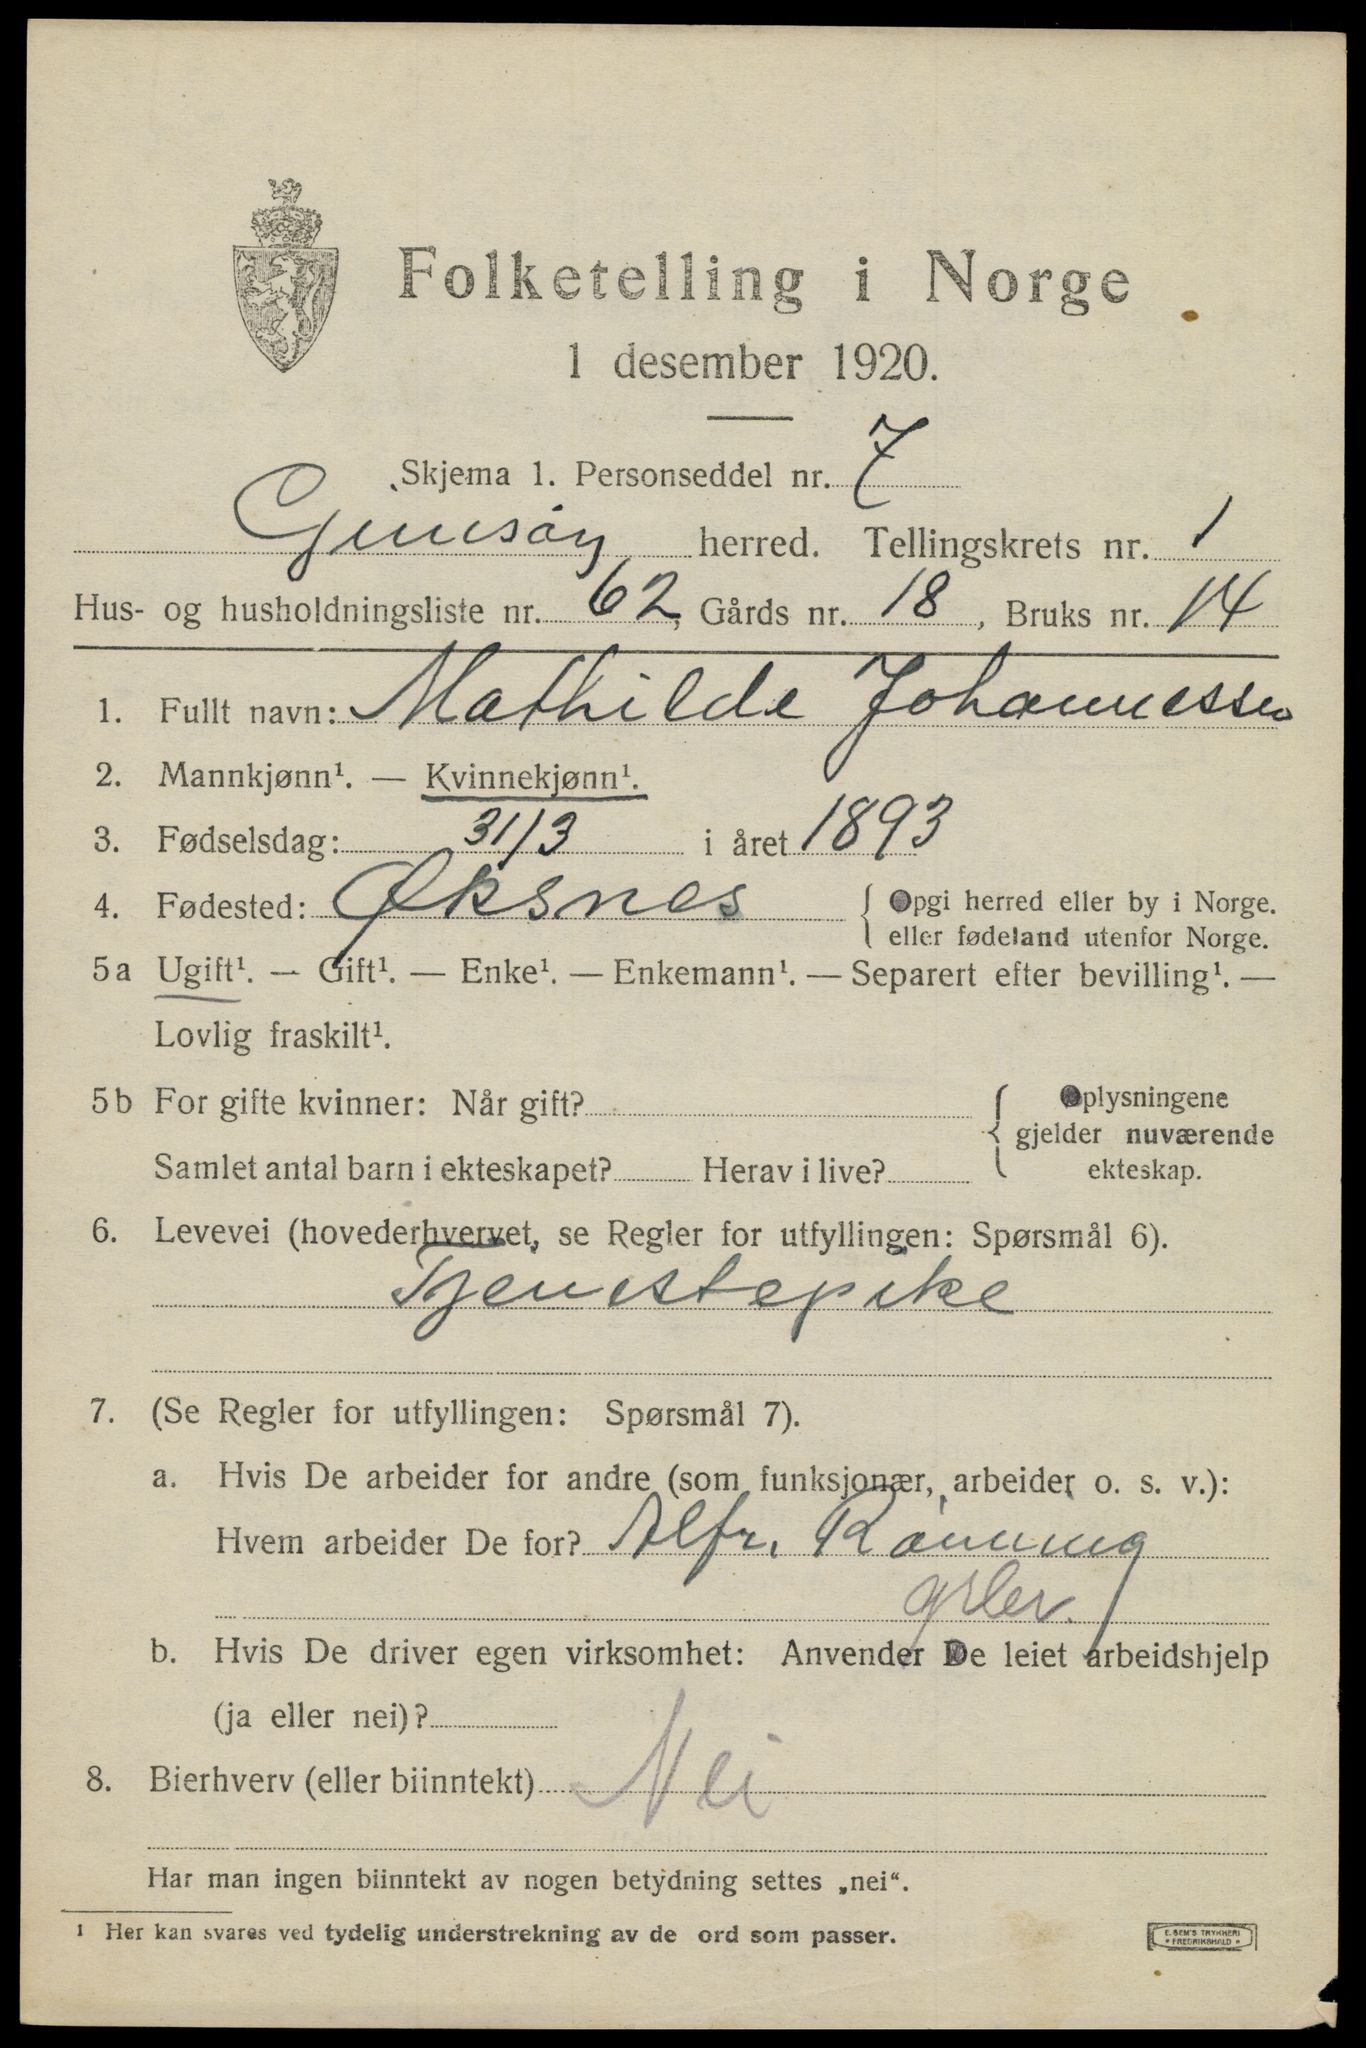 Folketelling i Norge
1 desember 1920.
Skjema 1. Personseddel nr. 7
Gimsøy herred. Tellingskrets nr. 1
Hus- og husholdningsliste nr. 62, Gårds nr. 18, Bruks nr. 14
1. Fullt navn: Mathilde Johannessen
2. Mannkjønn¹. — Kvinnekjønn¹.
3. Fødselsdag: 31/3 i året 1893
4. Fødested: Øksnes { Opgi herred eller by i Norge.
eller fødeland utenfor Norge.
5a Ugift¹. — Gift¹. — Enke¹. — Enkemann¹. — Separert efter bevilling¹. —
Lovlig fraskilt¹.
5b For gifte kvinner: Når gift? { Oplysningene
gjelder nuværende
Samlet antal barn i ekteskapet? Herav i live? ekteskap.
6. Levevei (hovederhvervet, se Regler for utfyllingen: Spørsmål 6).
Tjenestepike
7. (Se Regler for utfyllingen: Spørsmål 7).
a. Hvis De arbeider for andre (som funksjonær, arbeider o. s. v.):
Hvem arbeider De for? Alfr. Rønning
b. Hvis De driver egen virksomhet: Anvender De leiet arbeidshjelp
(ja eller nei)?
8. Bierhverv (eller biinntekt) Nei
Har man ingen biinntekt av nogen betydning settes „nei“.
¹ Her kan svares ved tydelig understrekning av de ord som passer.
E. SEM'S TRYKKERI
* FREDRIKSHALD *